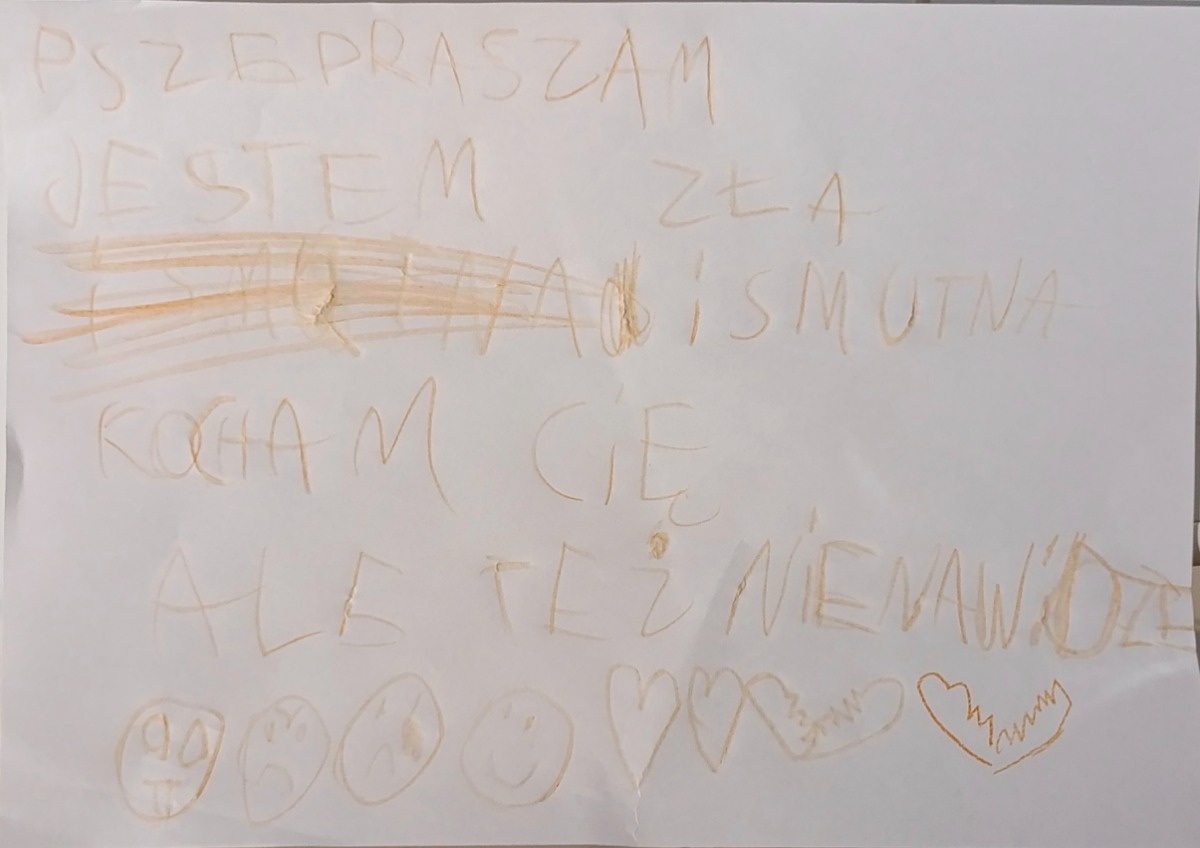 PSZEPRASZAM
JESTEM ZŁA
i SMUTNA
KOCHAM CiĘ
ALE TEŻ NiENAWiDZE